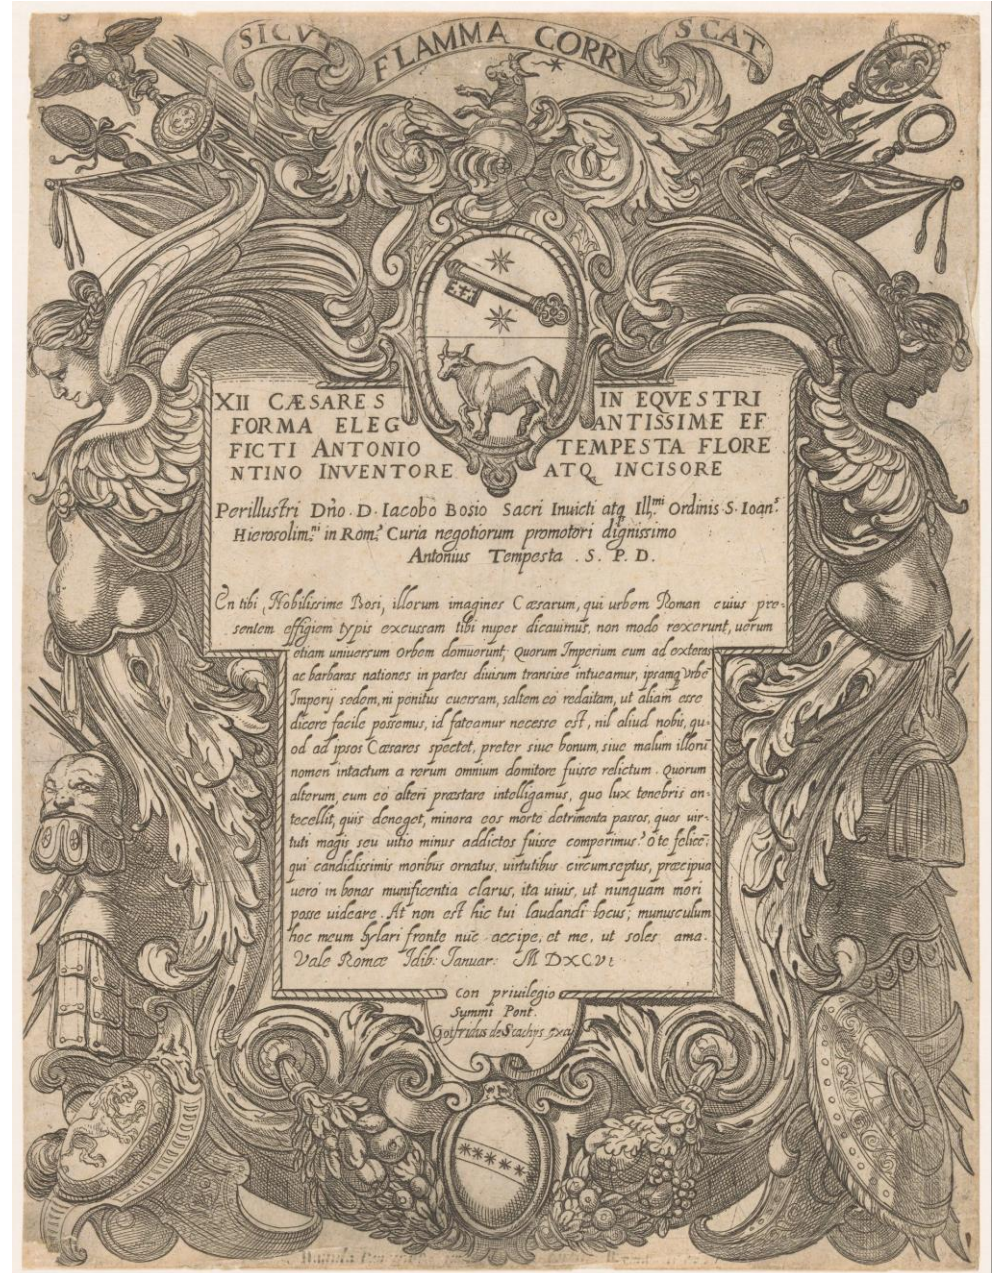 SICVT FLAMMA CORRVSCAT
XII CÆSARES IN EQVESTRI
FORMA ELEGANTISSIME EF
FICTI ANTONIO TEMPESTA FLORE
NTINO INVENTORE ATQ INCISORE
Perillustri Dño D. Iacobo Bosio Sacri Inuicti atq Ill.mi Ordinis S. Ioan.s
Hierosolim.ni in Rom.a Curia negotiorum promotori dignissimo
Antonius Tempesta . S. P. D.
En tibi, Nobilissime Bosi, illorum imagines Cæsarum, qui urbem Roman cuius pre-
sentem effigiem typis excussam tibi nuper dicauimus, non modo rexerunt, uerum
etiam uniuersum orbem domuerunt; Quorum Imperium cum ad exteras
ac barbaras nationes in partes diuisum transisse intueamur, ipsamq Vrbē
Imperij sedem, ni penitus euersam, saltem eò redaitam, ut aliam esse
dicere facile possemus, id fateamur necesse est, nil aliud nobis, qu-
od ad ipsos Cæsares spectet, preter siue bonum, siue malum illorū
nomen intactum a rerum omnium domitore fuisse relictum. Quorum
alterum, cum eò alteri præstare intelligamus, quo lux tenebris an-
tecellit, quis deneget, minora eos morte detrimenta passos, quos uir-
tuti magis seu uitio minus addictos fuisse comperimus? ò te felicē;
qui candidissimis moribus ornatus, uirtutibus circumseptus, præcipua
uero in bonos munificentia clarus, ita uiuis, ut nunquam mori
posse uideare. At non est hic tui laudandi locus; munusculum
hoc meum hylari fronte nūc accipe, et me, ut soles ama.
Vale Romæ Idib: Ianuar: M DXCVI
Con priuilegio
Summi Pont.
Gotfridus de Scachys exc.